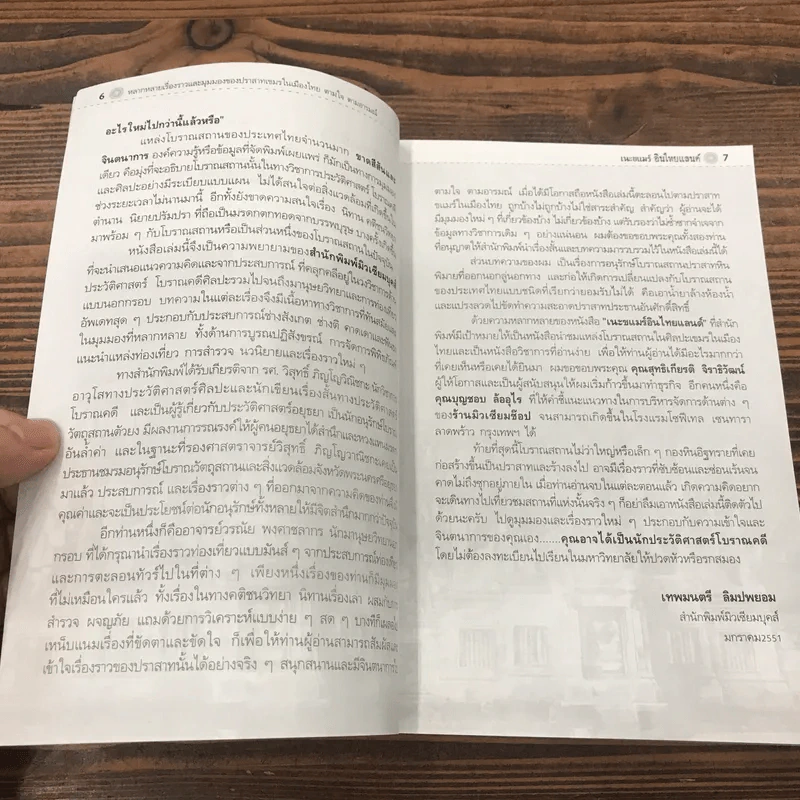 6 หลากหลายเรื่องราวและมุมมองของปราสาทเขมรในเมืองไทย ตามใจ ตามอารมณ์
อะไรใหม่ไปกว่านี้แล้วหรือ"
แหล่งโบราณสถานของประเทศไทยจำนวนมาก ขาดสีสันและ
จินตนาการ องค์ความรู้หรือข้อมูลที่จัดพิมพ์เผยแพร่ ก็มักเป็นทางการมุมมอง
เดียว คือมุ่งที่จะอธิบายโบราณสถานนั้นในทางวิชาการประวัติศาสตร์ โบราณคดี
และศิลปะอย่างมีระเบียบแบบแผน ไม่ได้สนใจต่อสิ่งแวดล้อมที่เกิดขึ้นใน
ช่วงระยะเวลาไม่นานมานี้ อีกทั้งยังขาดความสนใจเรื่อง นิทาน คติชนวิทยา
ตำนาน นิยายปรัมปรา ที่ถือเป็นมรดกตกทอดจากบรรพบุรุษ บางครั้งเกิดขึ้น
มาพร้อม ๆ กับโบราณสถานหรือเป็นส่วนหนึ่งของโบราณสถานในปัจจุบัน
หนังสือเล่มนี้จึงเป็นความพยายามของสำนักพิมพ์มิวเซียมบุคส์
ที่จะนำเสนอแนวความคิดและจากประสบการณ์ ที่คลุกคลีอยู่ในวงวิชาการด้าน
ประวัติศาสตร์ โบราณคดีศิลปะรวมไปจนถึงมานุษยวิทยาและการท่องเที่ยว
แบบนอกกรอบ บทความในแต่ละเรื่องจึงมีเนื้อหาทางวิชาการที่ทันสมัยและ
อัพเดทสุด ๆ ประกอบกับประสบการณ์ช่างสังเกต ช่างติ คาดเดาและฟันธง
ในมุมมองที่หลากหลาย ทั้งด้านการบูรณปฏิสังขรณ์ การจัดการพิพิธภัณฑ์
แนะนำแหล่งท่องเที่ยว การสำรวจ นวนิยายและเรื่องราวใหม่ ๆ
ทางสำนักพิมพ์ได้รับเกียรติจาก รศ. วิสุทธิ์ ภิญโญวาณิชกะ นักวิชาการ
อาวุโสทางประวัติศาสตร์ศิลปะและนักเขียนเรื่องสั้นทางประวัติศาสตร์
โบราณคดี และเป็นผู้รู้เกี่ยวกับประวัติศาสตร์อยุธยา เป็นนักอนุรักษ์โบราณ
วัตถุสถานตัวยง มีผลงานการรณรงค์ให้ผู้คนอยุธยาได้สำนึกและหวงแหนมรดก
อันล้ำค่า และในฐานะที่รองศาสตราจารย์วิสุทธิ์ ภิญโญวาณิชกะเคยเป็น
ประธานชมรมอนุรักษ์โบราณวัตถุสถานและสิ่งแวดล้อมจังหวัดพระนครศรีอยุธยา
มาแล้ว ประสบการณ์ และเรื่องราวต่าง ๆ ที่ออกมาจากความคิดของท่านจึงมี
คุณค่าและจะเป็นประโยชน์ต่อนักอนุรักษ์ทั้งหลายให้มีจิตสำนึกมากกว่าปัจจุบัน
อีกท่านหนึ่งก็คืออาจารย์วรณัย พงศาชลากร นักมานุษยวิทยานอก
กรอบ ที่ได้กรุณานำเรื่องราวท่องเที่ยวแบบมันส์ ๆ จากประสบการณ์ท่องเที่ยว
และการตะลอนทัวร์ไปในที่ต่าง ๆ เพียงหนึ่งเรื่องของท่านก็มีมุมมอง
ที่ไม่เหมือนใครแล้ว ทั้งเรื่องในทางคติชนวิทยา นิทานเรื่องเล่า ผสมกับการ
สำรวจ ผจญภัย แถมด้วยการวิเคราะห์แบบง่าย ๆ สด ๆ บางทีก็เผลอ
เหน็บแนมเรื่องที่ขัดตาและขัดใจ ก็เพื่อให้ท่านผู้อ่านสามารถสัมผัสและ
เข้าใจเรื่องราวของปราสาทนั้นได้อย่างจริง ๆ สนุกสนานและมีจินตนาการ
เนะขแมร์ อินไทยแลนด์ 7
ตามใจ ตามอารมณ์ เมื่อได้มีโอกาสถือหนังสือเล่มนี้ตะลอนไปตามปราสาท
ขแมร์ในเมืองไทย ถูกบ้างไม่ถูกบ้างไม่ใช่สาระสำคัญ สำคัญว่า ผู้อ่านจะได้
มีมุมมองใหม่ ๆ ที่เกี่ยวข้องบ้าง ไม่เกี่ยวข้องบ้าง แต่รับรองว่าไม่ซ้ำซากจำเจจาก
ข้อมูลทางวิชาการเดิม ๆ อย่างแน่นอน ผมต้องขอขอบพระคุณทั้งสองท่าน
ที่อนุญาตให้สำนักพิมพ์นำเรื่องสั้นและบทความมารวบรวมไว้ในหนังสือเล่มนี้ได้
ส่วนบทความของผม เป็นเรื่องการอนุรักษ์โบราณสถานปราสาทหิน
พิมายที่ออกนอกลู่นอกทาง และก่อให้เกิดการเปลี่ยนแปลงกับโบราณสถาน
ของประเทศไทยแบบชนิดที่เรียกว่ายอมรับไม่ได้ คือเอาน้ำยาล้างห้องน้ำ
และแปรงลวดไปขัดทำความสะอาดปราสาทประธานอันศักดิ์สิทธิ์
ด้วยความหลากหลายของหนังสือ "เนะขแมร์อินไทยแลนด์" ที่สำนัก
พิมพ์มีเป้าหมายให้เป็นหนังสือนำชมแหล่งโบราณสถานในศิลปะเขมรในเมือง
ไทยและเป็นหนังสือวิชาการที่อ่านง่าย เพื่อให้ท่านผู้อ่านได้มีอะไรมากกว่า
ที่เคยเห็นหรือเคยได้ยินมา ผมขอขอบพระคุณ คุณสุทธิเกียรติ จิราธิวัฒน์
ผู้ให้โอกาสและเป็นผู้สนับสนุนให้ผมเริ่มก้าวขึ้นมาทำธุรกิจ อีกคนหนึ่งคือ
คุณบุญชอบ ล้ออุไร ที่ให้คำชี้แนะแนวทางในการบริหารจัดการด้านต่าง ๆ
ของร้านมิวเซียมช๊อป จนสามารถเกิดขึ้นในโรงแรมโซฟิเทล เซนทารา
ลาดพร้าว กรุงเทพฯ ได้
ท้ายที่สุดนี้โบราณสถานไม่ว่าใหญ่หรือเล็ก ๆ กองหินอิฐทรายที่เคย
ก่อสร้างขึ้นเป็นปราสาทและร้างลงไป อาจมีเรื่องราวที่ซับซ้อนและซ่อนเร้นจน
คาดไม่ถึงซุกอยู่ภายใน เมื่อท่านอ่านจบในแต่ละตอนแล้ว เกิดความคิดอยาก
จะเดินทางไปเที่ยวชมสถานที่แห่งนั้นจริง ๆ ก็อย่าลืมเอาหนังสือเล่มนี้ติดตัวไป
ด้วยนะครับ ไปดูมุมมองและเรื่องราวใหม่ ๆ ประกอบกับความเข้าใจและ
จินตนาการของคุณเอง.......คุณอาจได้เป็นนักประวัติศาสตร์โบราณคดี
โดยไม่ต้องลงทะเบียนไปเรียนในมหาวิทยาลัยให้ปวดหัวหรือรกสมอง
เทพมนตรี ลิมปพยอม
สำนักพิมพ์มิวเซียมบุคส์
มกราคม2551